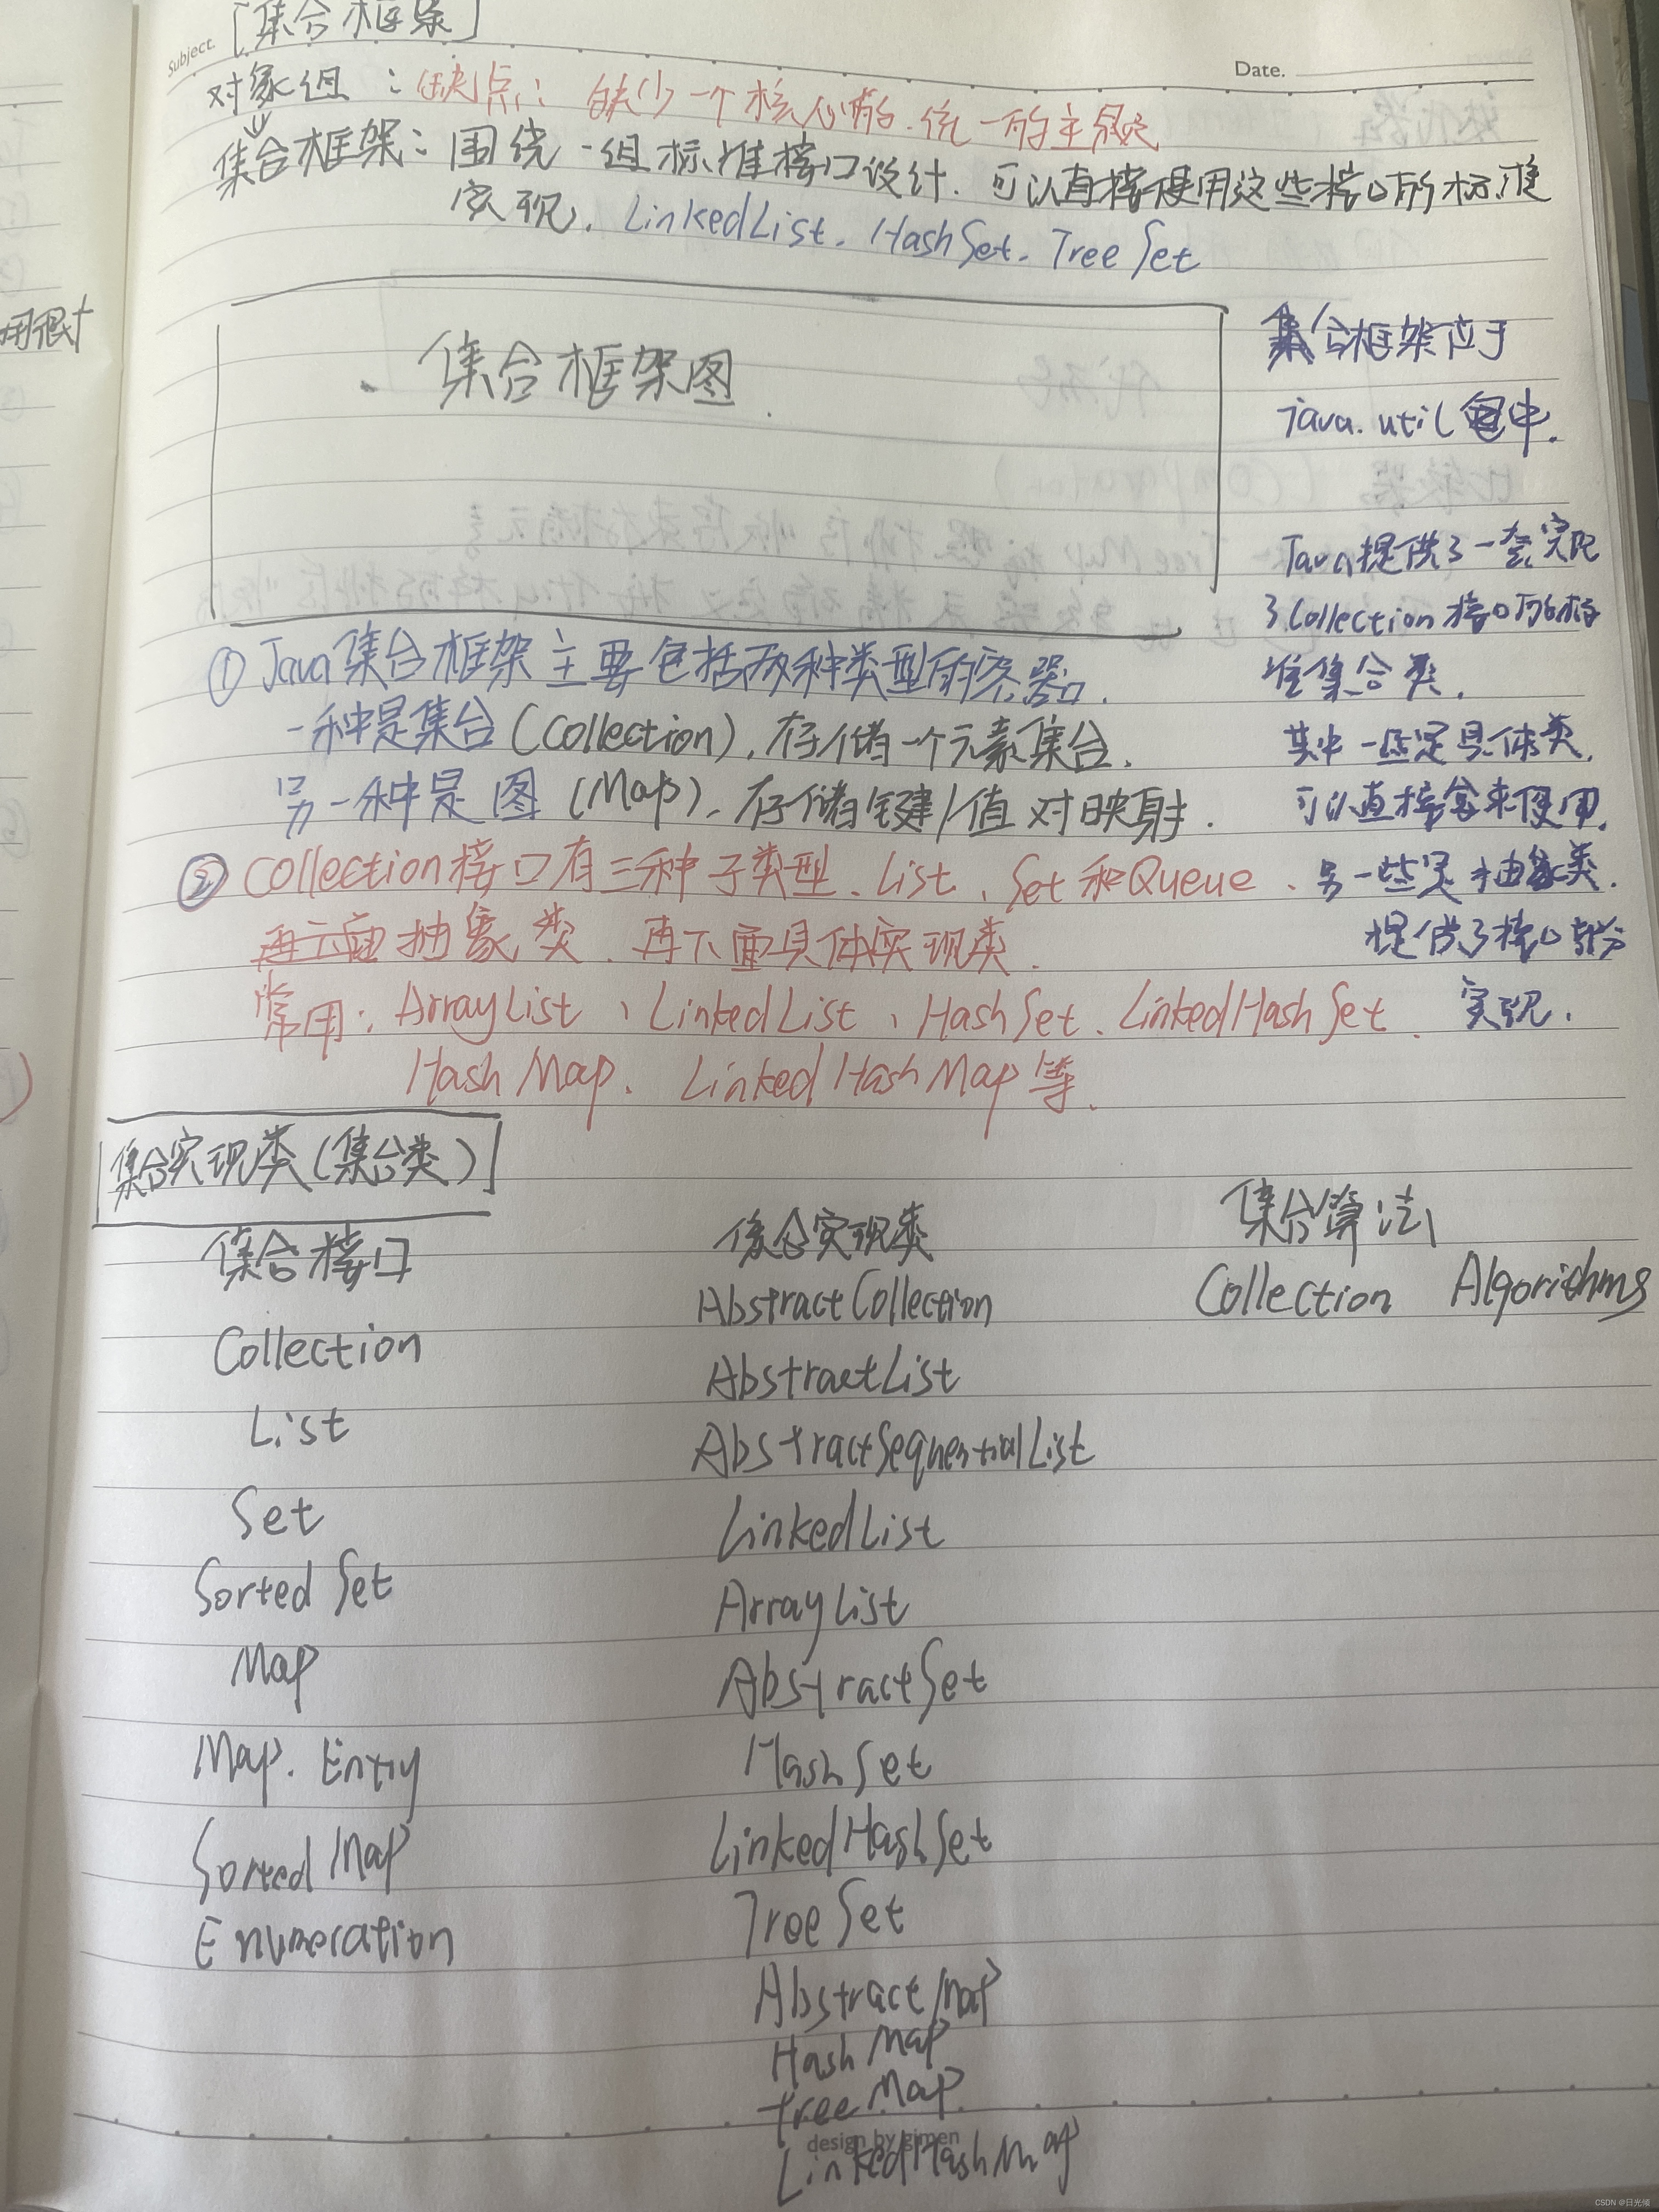 Subject.
[集合框架]
Date.
对象组：缺点：缺少一个核心的、统一的主题
集合框架：围绕一组标准接口设计.可以直接使用这些接口的标准
实现. LinkedList. HashSet. TreeSet
用很
集合框架图.
集合框架位于
java.util包中.
Java提供了一套实现
了Collection接口的标
准集合类.
其中一些是具体类,
可以直接拿来使用,
另一些是抽象类.
提供了接口部分
实现.
① Java集合框架主要包括两种类型的容器.
一种是集合(Collection),存储一个元素集合.
另一种是图(Map)、存储键/值对映射.
② Collection接口有三种子类型、List、Set和Queue、
再下面抽象类、再下面具体实现类.
常用: ArrayList、LinkedList、HashSet、LinkedHashSet、
HashMap、LinkedHashMap等、
集合实现类(集合类)
集合接口
Collection
List
Set
Sorted Set
Map
Map. Entry
Sorted Map
Enumeration
集合实现类
AbstractCollection
AbstractList
AbstractSequentialList
LinkedList
ArrayList
AbstractSet
HashSet
LinkedHashSet
TreeSet
AbstractMap
HashMap
treeMap
LinkedHashMap
集合算法
Collection Algorithms
design by gimen
CSDN @日光倾